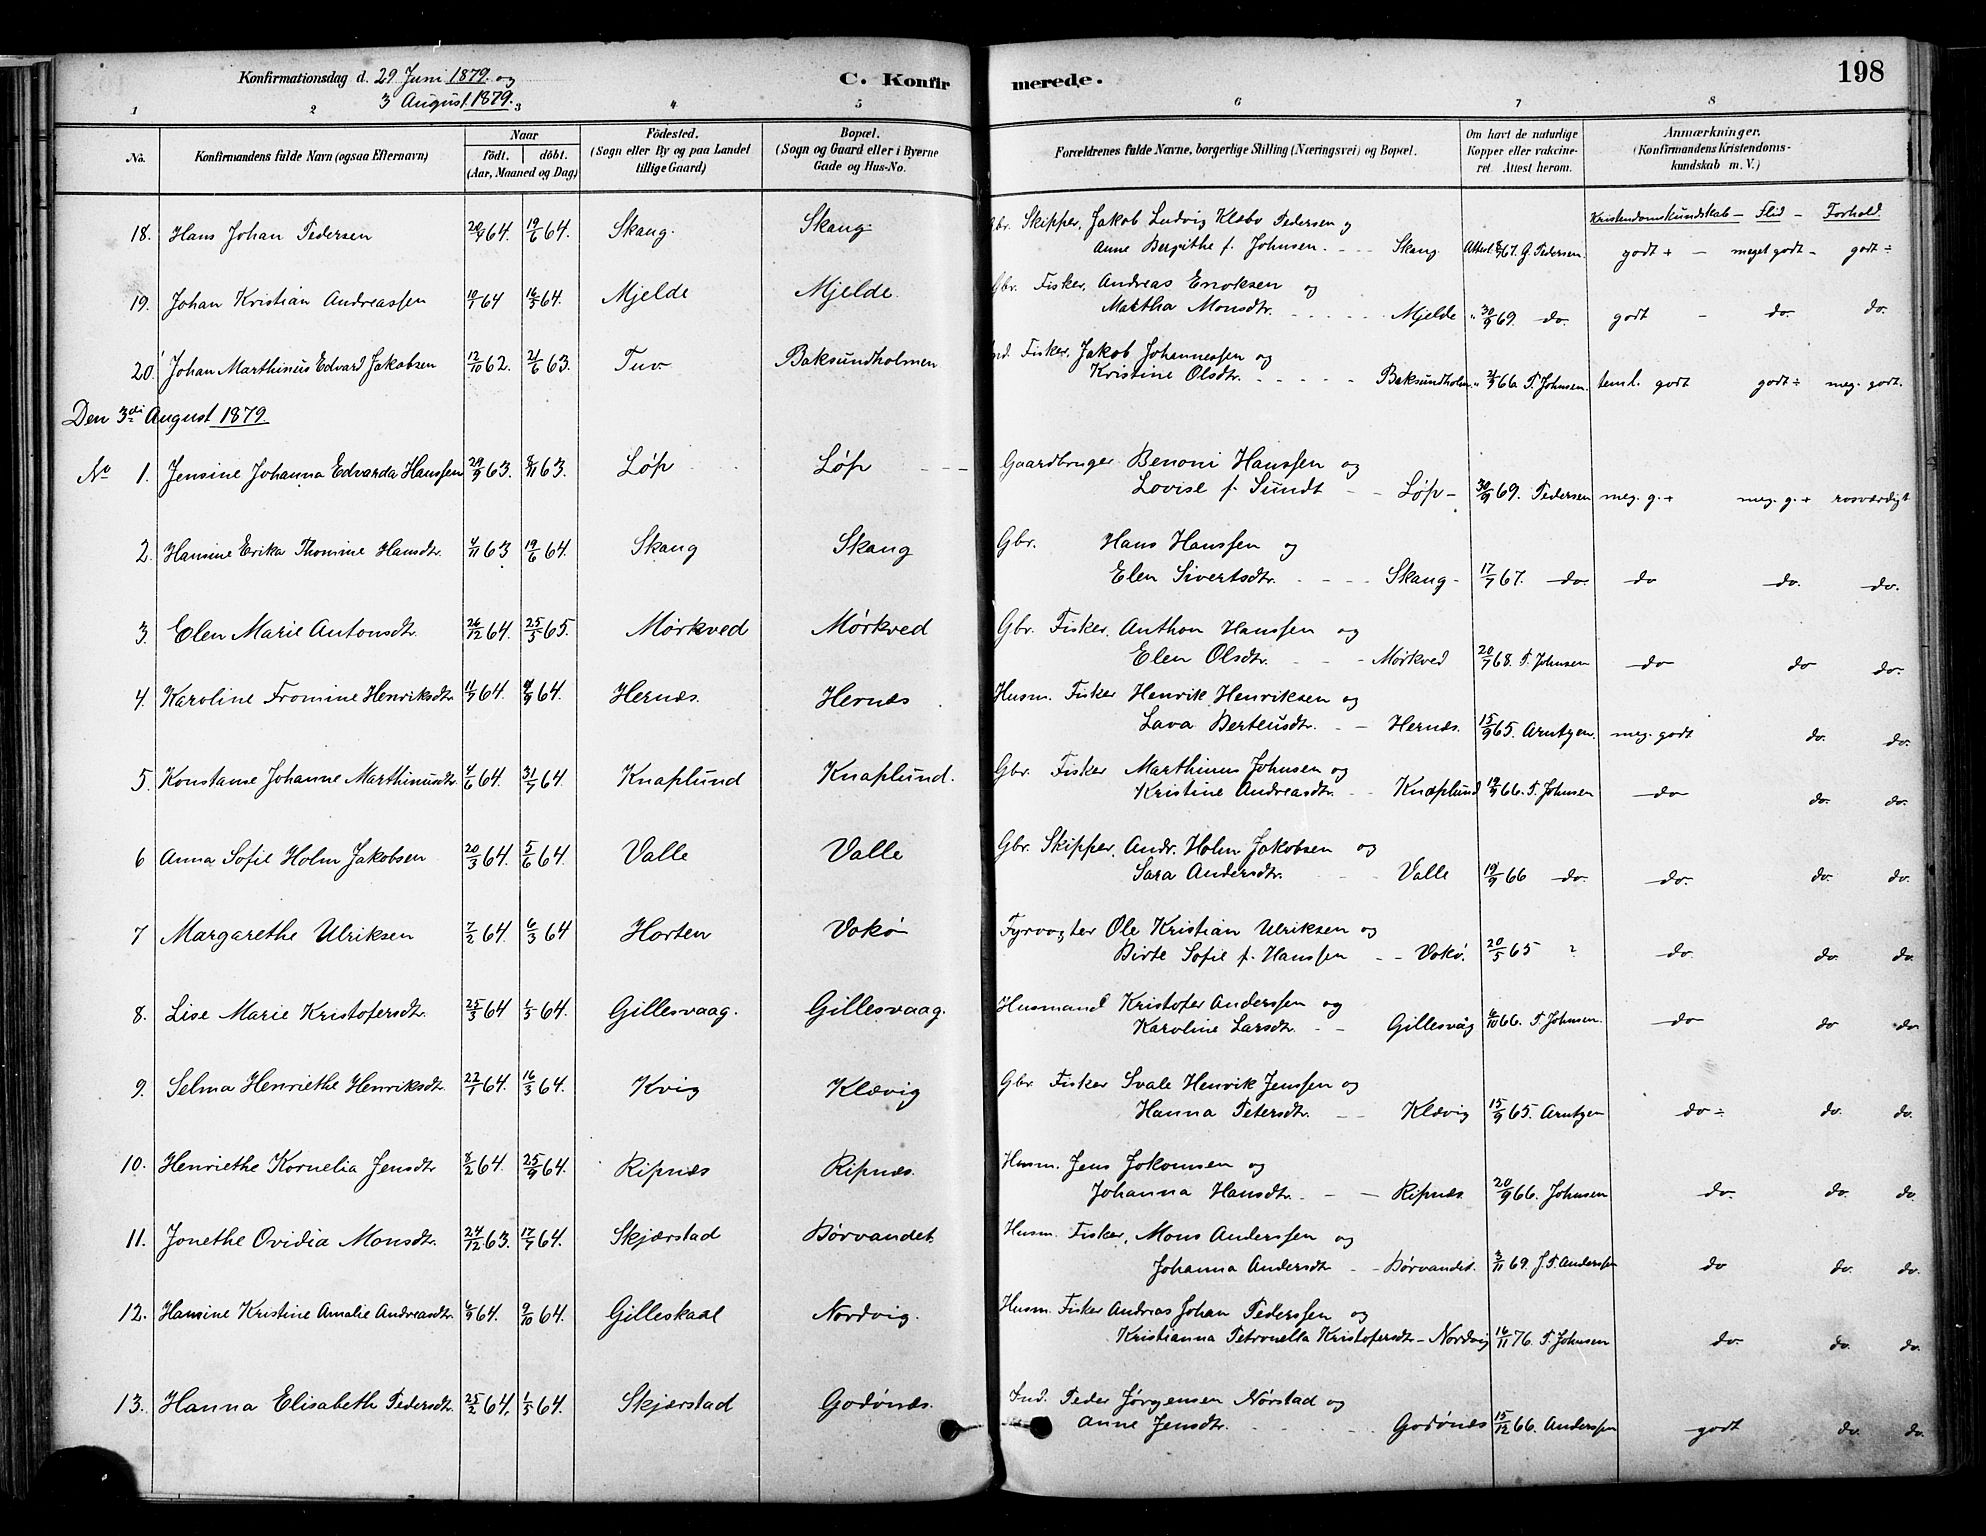 Konfirmationsdag d. 29 Juni 1879. og
3 August 1879.
C. Konfirmerede.
198
1 2 3 4 5 6 7 8
No. Konfirmandens fulde Navn (ogsaa Efternavn) Naar födt. döbt. (Aar, Maaned og Dag) Födested. (Sogn eller By og paa Landet tillige Gaard) Bopæl. (Sogn og Gaard eller i Byerne Gade og Hus-No. Forældrenes fulde Navne, borgerlige Stilling (Næringsvei) og Bopæl. Om havt de naturlige Kopper eller vakcineret. Attest herom. Anmærkninger. (Konfirmandens Kristendomskundskab m. V.)
Kristendomskundskab – Flid – Forhold.
18. Hans Johan Pedersen 29/4 64. 19/6 64. Skaug. Skaug. Gbr. Skipper, Jakob Ludvig Klæbo Pedersen og
Anne Bergithe f. Johnsen. Skaug. Attest 67. G. Pedersen. godt + – meget godt – godt ÷
19. Johan Kristian Andreassen 19/1 64 16/5 64. Mjelde Mjelde. Gbr. Fisker, Andreas Enoksen og
Martha Monsdtr. Mjelde " 30/9 69. do. godt – do. do.
20. Johan Marthinus Edvard Jakobsen 12/10 62. 21/6 63. Tuv Baksundholmen Ind. Fisker, Jakob Johannessen og
Kristine Olsdtr. Baksundholm. " 66 P. Johnsen. teml. godt godt ÷ meg. godt.
Den 3die August 1879.
No 1. Jensine Johanna Edvarda Hanssen 29/9 63. 8/11 63. Løp Løp Gaardbruger Benoni Hanssen og
Lovise f. Sundt – Løp – 30/9 69. Pedersen meg. g. + meg. g. + rosværdigt
2. Hansine Erika Thomine Hansdtr. 4/11 63 19/6 64. Skaug Skaug Gbr. Hans Hanssen og
Elen Sivertsdtr. Skaug – 17/7 67. do. do do. do.
3. Elen Marie Antonsdtr. 26/12 64. 25/5 65. Mørkved Mørkved Gbr. Fisker, Anthon Hanssen og
Elen Olsdtr. – Mørkved 20/7 68. P. Johnsen do do do.
4. Karoline Fromine Henriksdtr 11/7 64. 4/9 64. Hernæs. Hernæs Husm. Fisker Henrik Henriksen og
Lava Berteusdtr. – Hernæs. 15/9 65. Arntzen. meg. godt do. do.
5. Konstanse Johanne Marthinusdtr 4/6 64. 31/7 64. Knaplund Knaplund. Gbr. Fisker Marthinus Johnsen og
Kristine Andreasdtr. Knaplund 19/9 66. P. Johnsen do do. do.
6 Anna Sofie Holm Jakobsen 20/3 64. 5/6 64. Valle Valle Gbr. Skipper, Andr. Holm Jakobsen og
Sara Andersdtr. Valle 19/9 66 do. do. do. do.
7 Margarethe Ulriksen 7/2 64. 6/3 64 Horten Vokø Fyrvogter Ole Kristian Ulriksen og
Birte Sofie f. Hanssen – – Vokø. 20/5 65 ? do. do. do.
8. Lise Marie Kristofersdtr. 25/3 64 1/5 64. Gillesvaag. Gillesvaag. Husmand Kristofer Anderssen og
Karoline Larsdtr. Gillesvåg 6/10 66. P. Johnsen. do do do
9. Selma Henriethe Henriksdtr. 22/1 64. 16/3 64. Kvig Klævig Gbr. Fisker Svale Henrik Jenssen og
Hanna Petersdtr. – – Klævig 15/9 65. Arntzen do ÷ do. do.
10. Henriethe Kornelia Jensdtr 8/2 64. 25/9 64. Ripnæs Ripnæs. Husm. Jens Jokomsen og
Johanna Hansdtr. – – Ripnæs. 20/9 66. Johnsen do. do. do.
11. Jonethe Ovidia Monsdtr. 24/12 63. 17/7 64. Skjærstad Børvandet. Husm. Fisker, Mons Anderssen og
Johanna Andersdtr – – Børvandet. 3/11 69. J. P. Anderssen do do. do.
12. Hansine Kristine Amalie Andreasdtr. 6/9 64. 9/10 64. Gilleskaal Nordvig. Husm. Fisker Andreas Johan Pederssen og
Kristianna Petronella Kristofersdtr – Nordvig 16/11 76. P. Johnsen do. do. do.
13. Hanna Elisabeth Pedersdtr. 25/2 64. 1/5 64. Skjærstad Godønæs. Ind. Peder Jørgensen Nørstad og
Anne Jensdtr. Godønæs 15/12 66. Anderssen godt do. do.